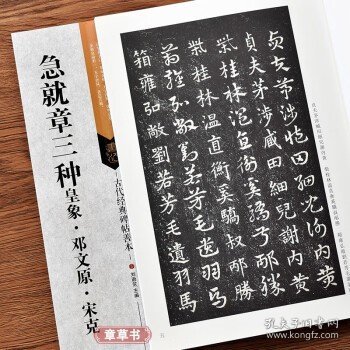 急就章三种
皇象·邓文原·宋克
古代经典碑帖善本
章草书
貞夫茅涉臧田細兒謝內黃
貞夫茅涉臧田細兒謝內黃
柴桂林溫直衡奚驕叔邴勝
柴桂林溫直衡奚驕叔邴勝
箱雍弘敞劉若芳毛遺羽馬
箱雍弘敞劉若芳毛遺羽馬
孔夫子旧书网